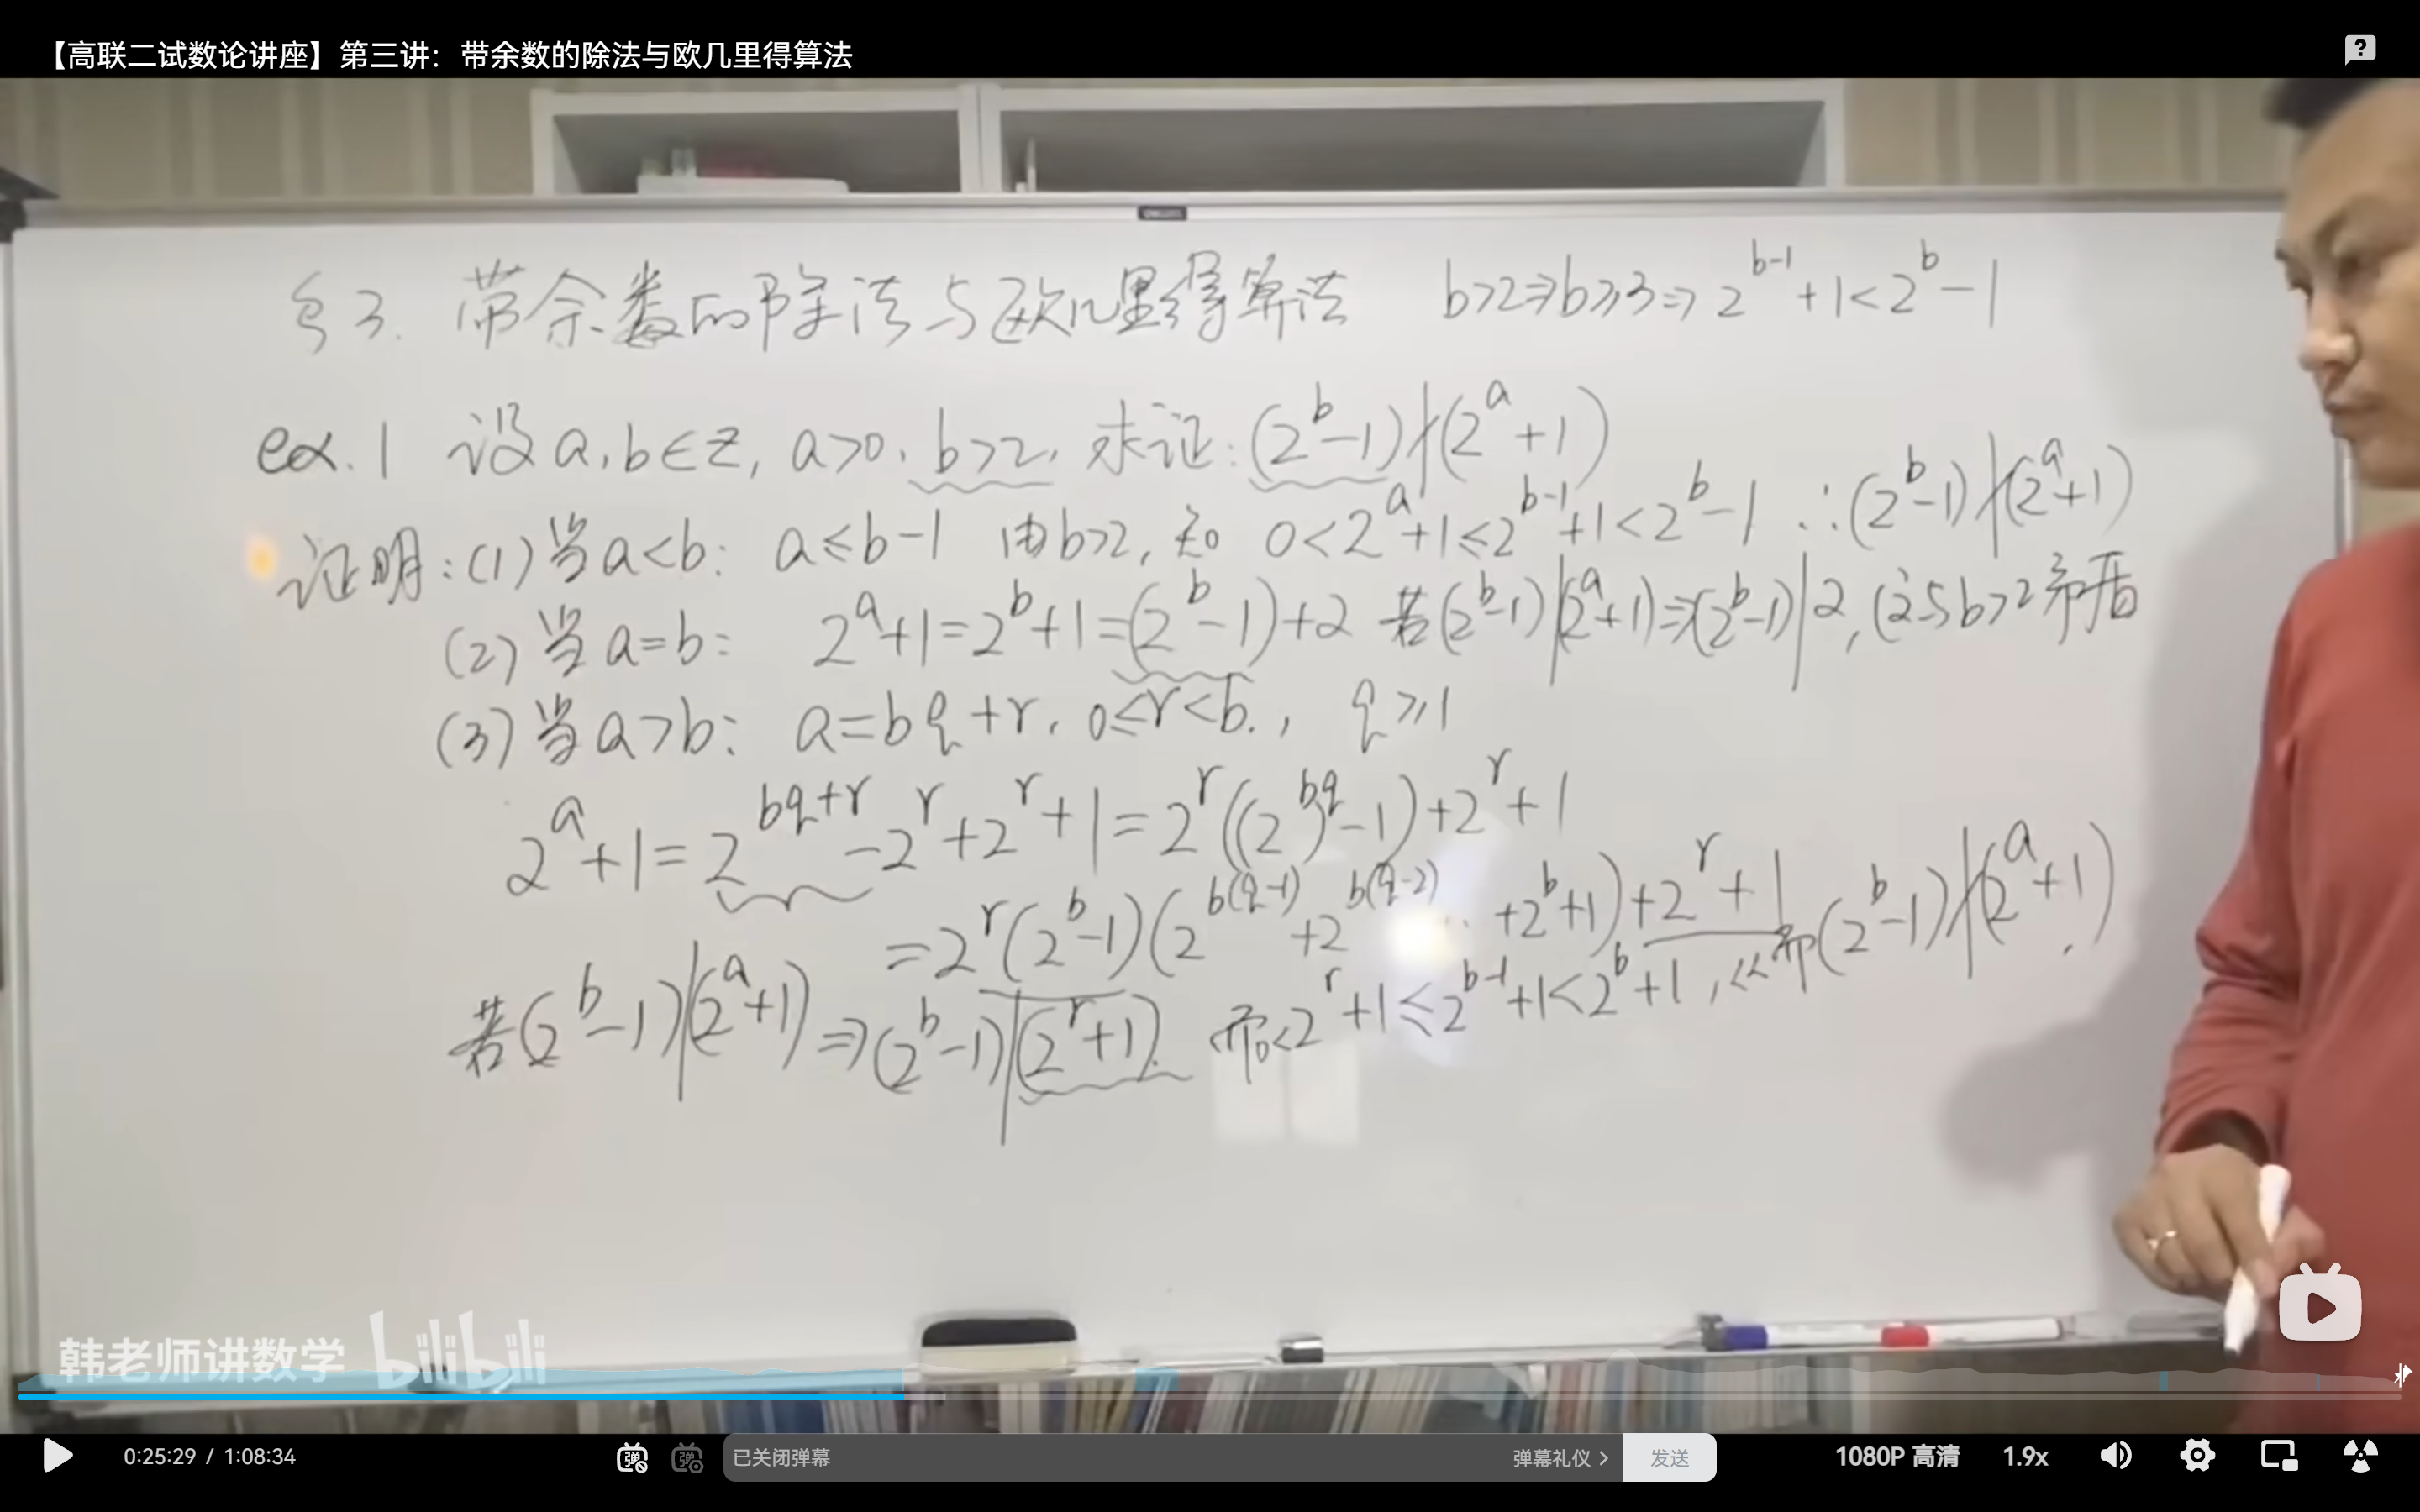 【高联二试数论讲座】第三讲：带余数的除法与欧几里得算法
§3. 带余数的除法与欧几里得算法 b>2⇒b≥3⇒2^{b-1}+1<2^b-1
ex.1 设a,b∈Z, a>0, b>2, 求证:(2^b-1)∤(2^a+1)
证明:(1)当a<b: a≤b-1 由b>2,知 0<2^a+1≤2^{b-1}+1<2^b-1 ∴(2^b-1)∤(2^a+1)
(2)当a=b: 2^a+1=2^b+1=(2^b-1)+2 若(2^b-1)|(2^a+1)⇒(2^b-1)|2,这与b>2矛盾
(3)当a>b: a=bq+r, 0≤r<b., q≥1
2^a+1=2^{bq+r}-2^r+2^r+1=2^r((2^b)^q-1)+2^r+1
=2^r(2^b-1)(2^{b(q-1)}+2^{b(q-2)}…+2^b+1)+2^r+1
若(2^b-1)|(2^a+1)⇒(2^b-1)|(2^r+1). 而0<2^r+1≤2^{b-1}+1<2^b+1,从而(2^b-1)∤(2^a+1).
韩老师讲数学 bilibili
0:25:29 / 1:08:34 弹 弹 已关闭弹幕 弹幕礼仪 > 发送 1080P 高清 1.9x